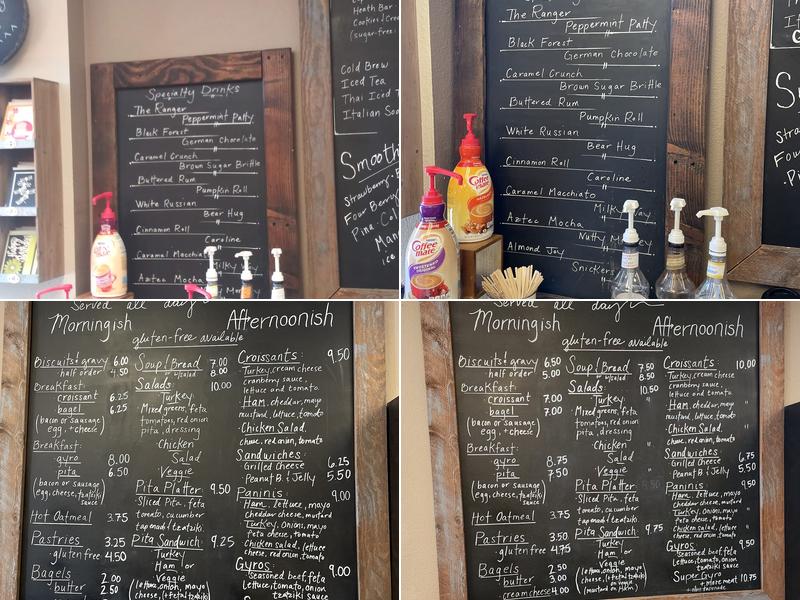 Heath Bar
Cookies &
(sugar-free
Cold Brew
Iced Tea
Thai Iced T
Italian So
Smooth
Strawberry
Four Berry
Pina Col
Man
ice
Specialty Drinks
The Ranger
Peppermint Patty
Black Forest
German Chocolate
Caramel Crunch
Brown Sugar Brittle
Buttered Rum
Pumpkin Roll
White Russian
Bear Hug
Cinnamon Roll
Caroline
Caramel Macchiato
Milky Way
Aztec Mocha
The Ranger
Peppermint Patty
Black Forest
German Chocolate
Caramel Crunch
Brown Sugar Brittle
Buttered Rum
Pumpkin Roll
White Russian
Bear Hug
Cinnamon Roll
Caroline
Caramel Macchiato
Milky Way
Aztec Mocha
Nutty
Almond Joy
Snickers
Coffee mate
Coffee mate
Served all day
Morningish
Afternoonish
gluten-free available
Biscuits & gravy 6.00
half order 4.50
Breakfast:
croissant 6.25
bagel 6.25
(bacon or sausage
egg, + cheese)
Breakfast:
gyro 8.00
pita 6.50
(bacon or sausage
egg, cheese, tzatziki
sauce)
Hot Oatmeal 3.75
Pastries 3.25
gluten free 4.50
Bagels 2.00
butter 2.50
Soup / Bread 7.00
or w/salad 8.00
Salads: 10.00
Turkey
Mixed greens, feta
tomatoes, red onion
pita, dressing
Chicken
Salad
Veggie
Pita Platter: 9.50
Sliced Pita, feta
tomato, cucumber
tapenade & tzatziki
Pita Sandwich: 9.25
Turkey
Ham or
Veggie
(lettuce, onion, mayo
cheese, (+ feta & tzatziki)
Croissants: 9.50
Turkey, cream cheese
cranberry sauce,
lettuce and tomato
Ham, cheddar, mayo
mustard, lettuce, tomato
Chicken Salad,
cheese, red onion, tomato
Sandwiches:
Grilled Cheese 6.25
Peanut B. & Jelly 5.50
Paninis: 9.00
Ham, lettuce, mayo
cheddar cheese, mustard
Turkey, onions, mayo
feta cheese, tomato
Chicken salad, lettuce
cheese, red onion, tomato
Gyros: 9.00
Seasoned beef, feta
lettuce, tomato, onion
tzatziki sauce
Served all day
Morningish
Afternoonish
gluten-free available
Biscuits & gravy 6.50
half order 5.00
Breakfast:
croissant 7.00
bagel 7.00
(bacon or sausage
egg, + cheese)
Breakfast:
gyro 8.75
pita 7.50
(bacon or sausage
egg, cheese, tzatziki
sauce)
Hot Oatmeal 3.75
Pastries 3.50
gluten free 4.75
Bagels 2.00
butter 3.00
cream cheese 4.00
Soup / Bread 7.50
or w/salad 8.50
Salads: 10.50
Turkey "
Mixed greens, feta
tomatoes, red onion
pita, dressing
Chicken "
Salad
Veggie "
Pita Platter:
Sliced Pita, feta
tomato, cucumber
tapenade & tzatziki
Pita Sandwich: 9.75
Turkey
Ham or
Veggie
(lettuce, onion, mayo
cheese, (+ feta & tzatziki)
(mustard on Ham)
Croissants: 10.00
Turkey, cream cheese
cranberry sauce,
lettuce and tomato
Ham, cheddar, mayo
mustard, lettuce, tomato
Chicken Salad,
cheese, red onion, tomato
Sandwiches: 6.75
Grilled Cheese
Peanut B. & Jelly 5.50
Paninis: 9.50
Ham, lettuce, mayo
cheddar cheese, mustard
Turkey, onions, mayo
feta cheese, tomato
Chicken salad, lettuce
cheese, red onion, tomato
Gyros: 9.50
Seasoned beef, feta
lettuce, tomato, onion
tzatziki sauce
Super Gyro 10.75
+ more meat